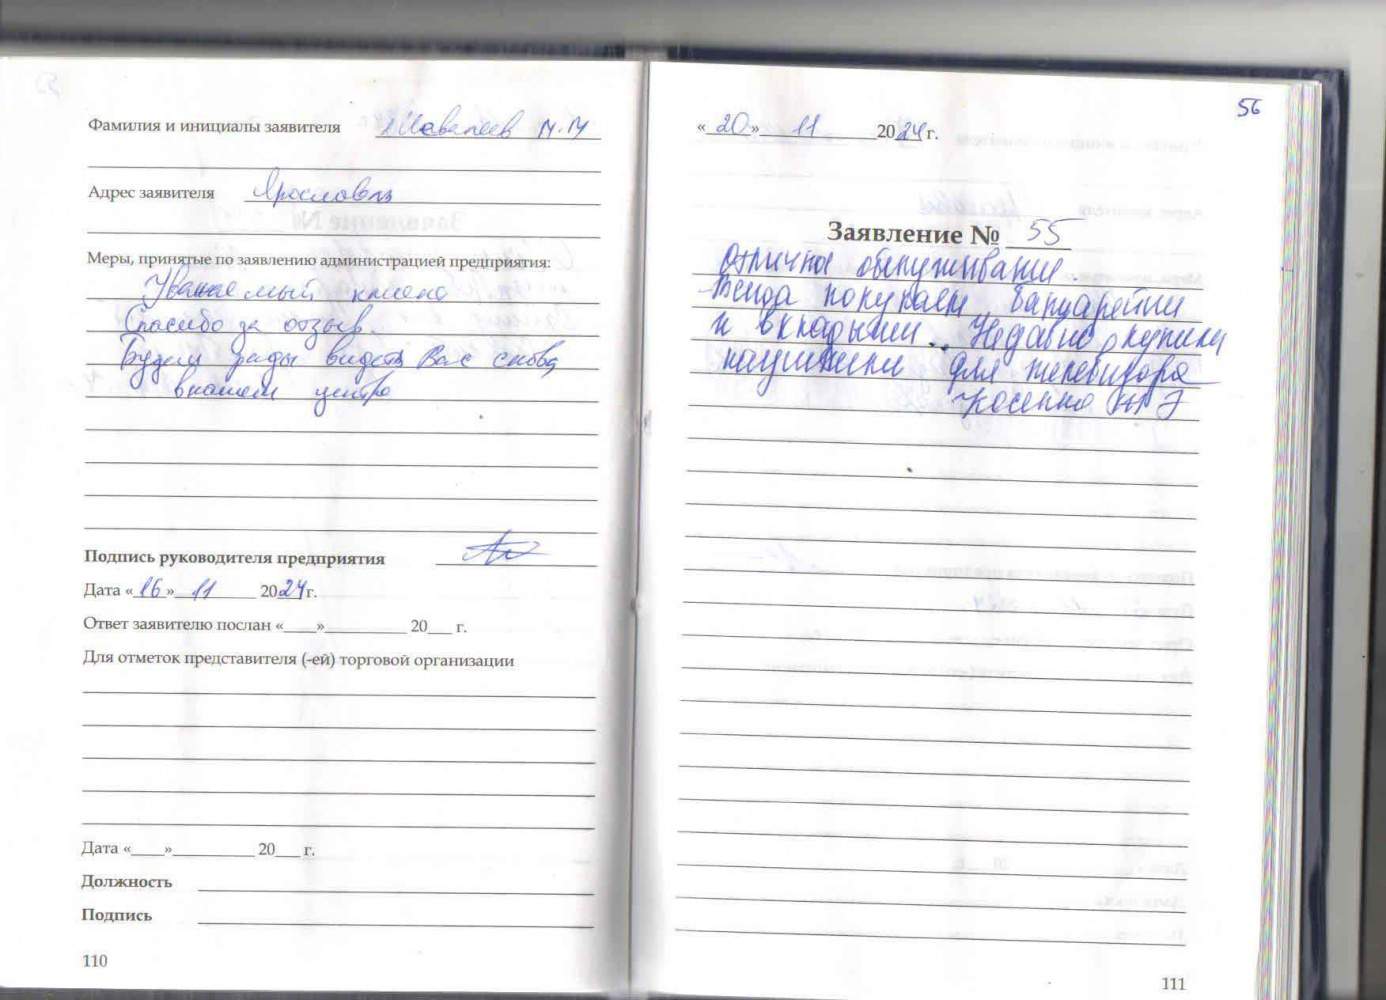 Фамилия и инициалы заявителя М.М
Адрес заявителя Ярославль
Меры, принятые по заявлению администрацией предприятия:
Уважаемый клиент
Спасибо за отзыв.
Будем рады видеть Вас снова
в нашем центре
Подпись руководителя предприятия
Дата «16» 11 2024г.
Ответ заявителю послан «___»_________ 20___ г.
Для отметок представителя (-ей) торговой организации
Дата «___»_________ 20___ г.
Должность
Подпись
110
56
«20» 11 2024г.
Заявление № 55
Отличное обслуживание.
Всегда покупаем батарейки
и вкладыши.. Недавно купили
наушники для телевизора
111